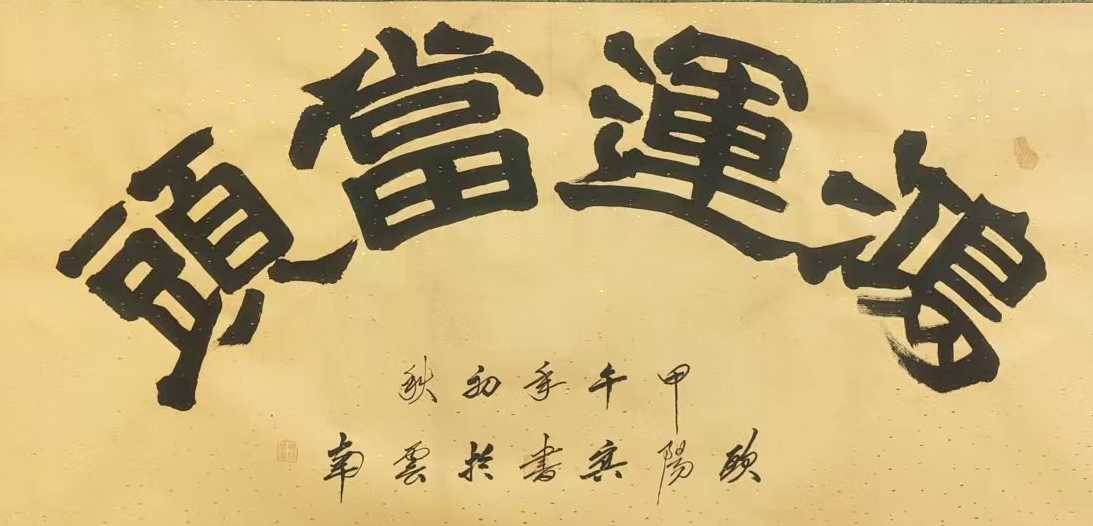 鴻運當頭
甲午年初秋
歐陽寅書於雲南